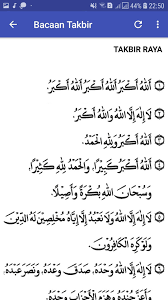 83% 22:50
Bacaan Takbir
TAKBIR RAYA
اَللهُ أَكْبَرُ اَللهُ أَكْبَرُ اَللهُ أَكْبَرُ.
لَا إِلَهَ إِلَّا اللهُ وَاللهُ أَكْبَرُ.
اَللهُ أَكْبَرُ وَلِلَّهِ الْحَمْدُ.
اَللهُ أَكْبَرُ كَبِيْرًا، وَالْحَمْدُ لِلَّهِ كَثِيْرًا،
وَسُبْحَانَ اللهِ بُكْرَةً وَأَصِيْلًا.
لَا إِلَهَ إِلَّا اللهُ وَلَا نَعْبُدُ إِلَّا إِيَّاهُ مُخْلِصِيْنَ لَهُ الدِّيْنَ
وَلَوْ كَرِهَ الْكَافِرُوْنَ.
لَا إِلَهَ إِلَّا اللهُ وَحْدَهُ، صَدَقَ وَعْدَهُ، وَنَصَرَ عَبْدَهُ،
وَأَعَزَّ جُنْدَهُ وَهَزَمَ الْأَحْزَابَ وَحْدَهُ،